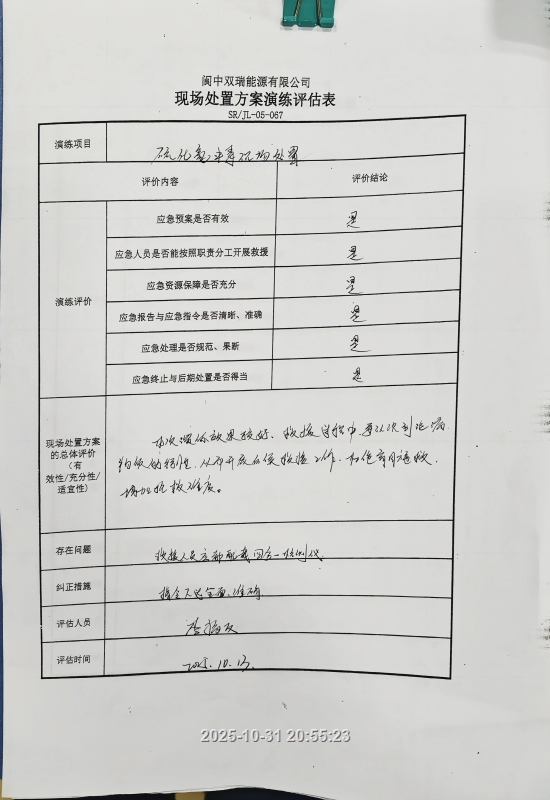 阆中双瑞能源有限公司
现场处置方案演练评估表
SR/JL-05-067
演练项目
硫化氢 现场处置
评价内容 评价结论
演练评价
应急预案是否有效 是
应急人员是否能按照职责分工开展救援 是
应急资源保障是否充分 是
应急报告与应急指令是否清晰、准确 是
应急处理是否规范、果断 是
应急终止与后期处置是否得当 是
现场处置方案
的总体评价
(有
效性/充分性/
适宜性)
本次演练效果较好、救援过程中
的特性、从而开展后续救援工作、
增加 难度。
存在问题
救援人员 配戴四合一检测仪
纠正措施
指令 全面、准确
评估人员
评估时间
2025.10.13.
2025-10-31 20:55:23